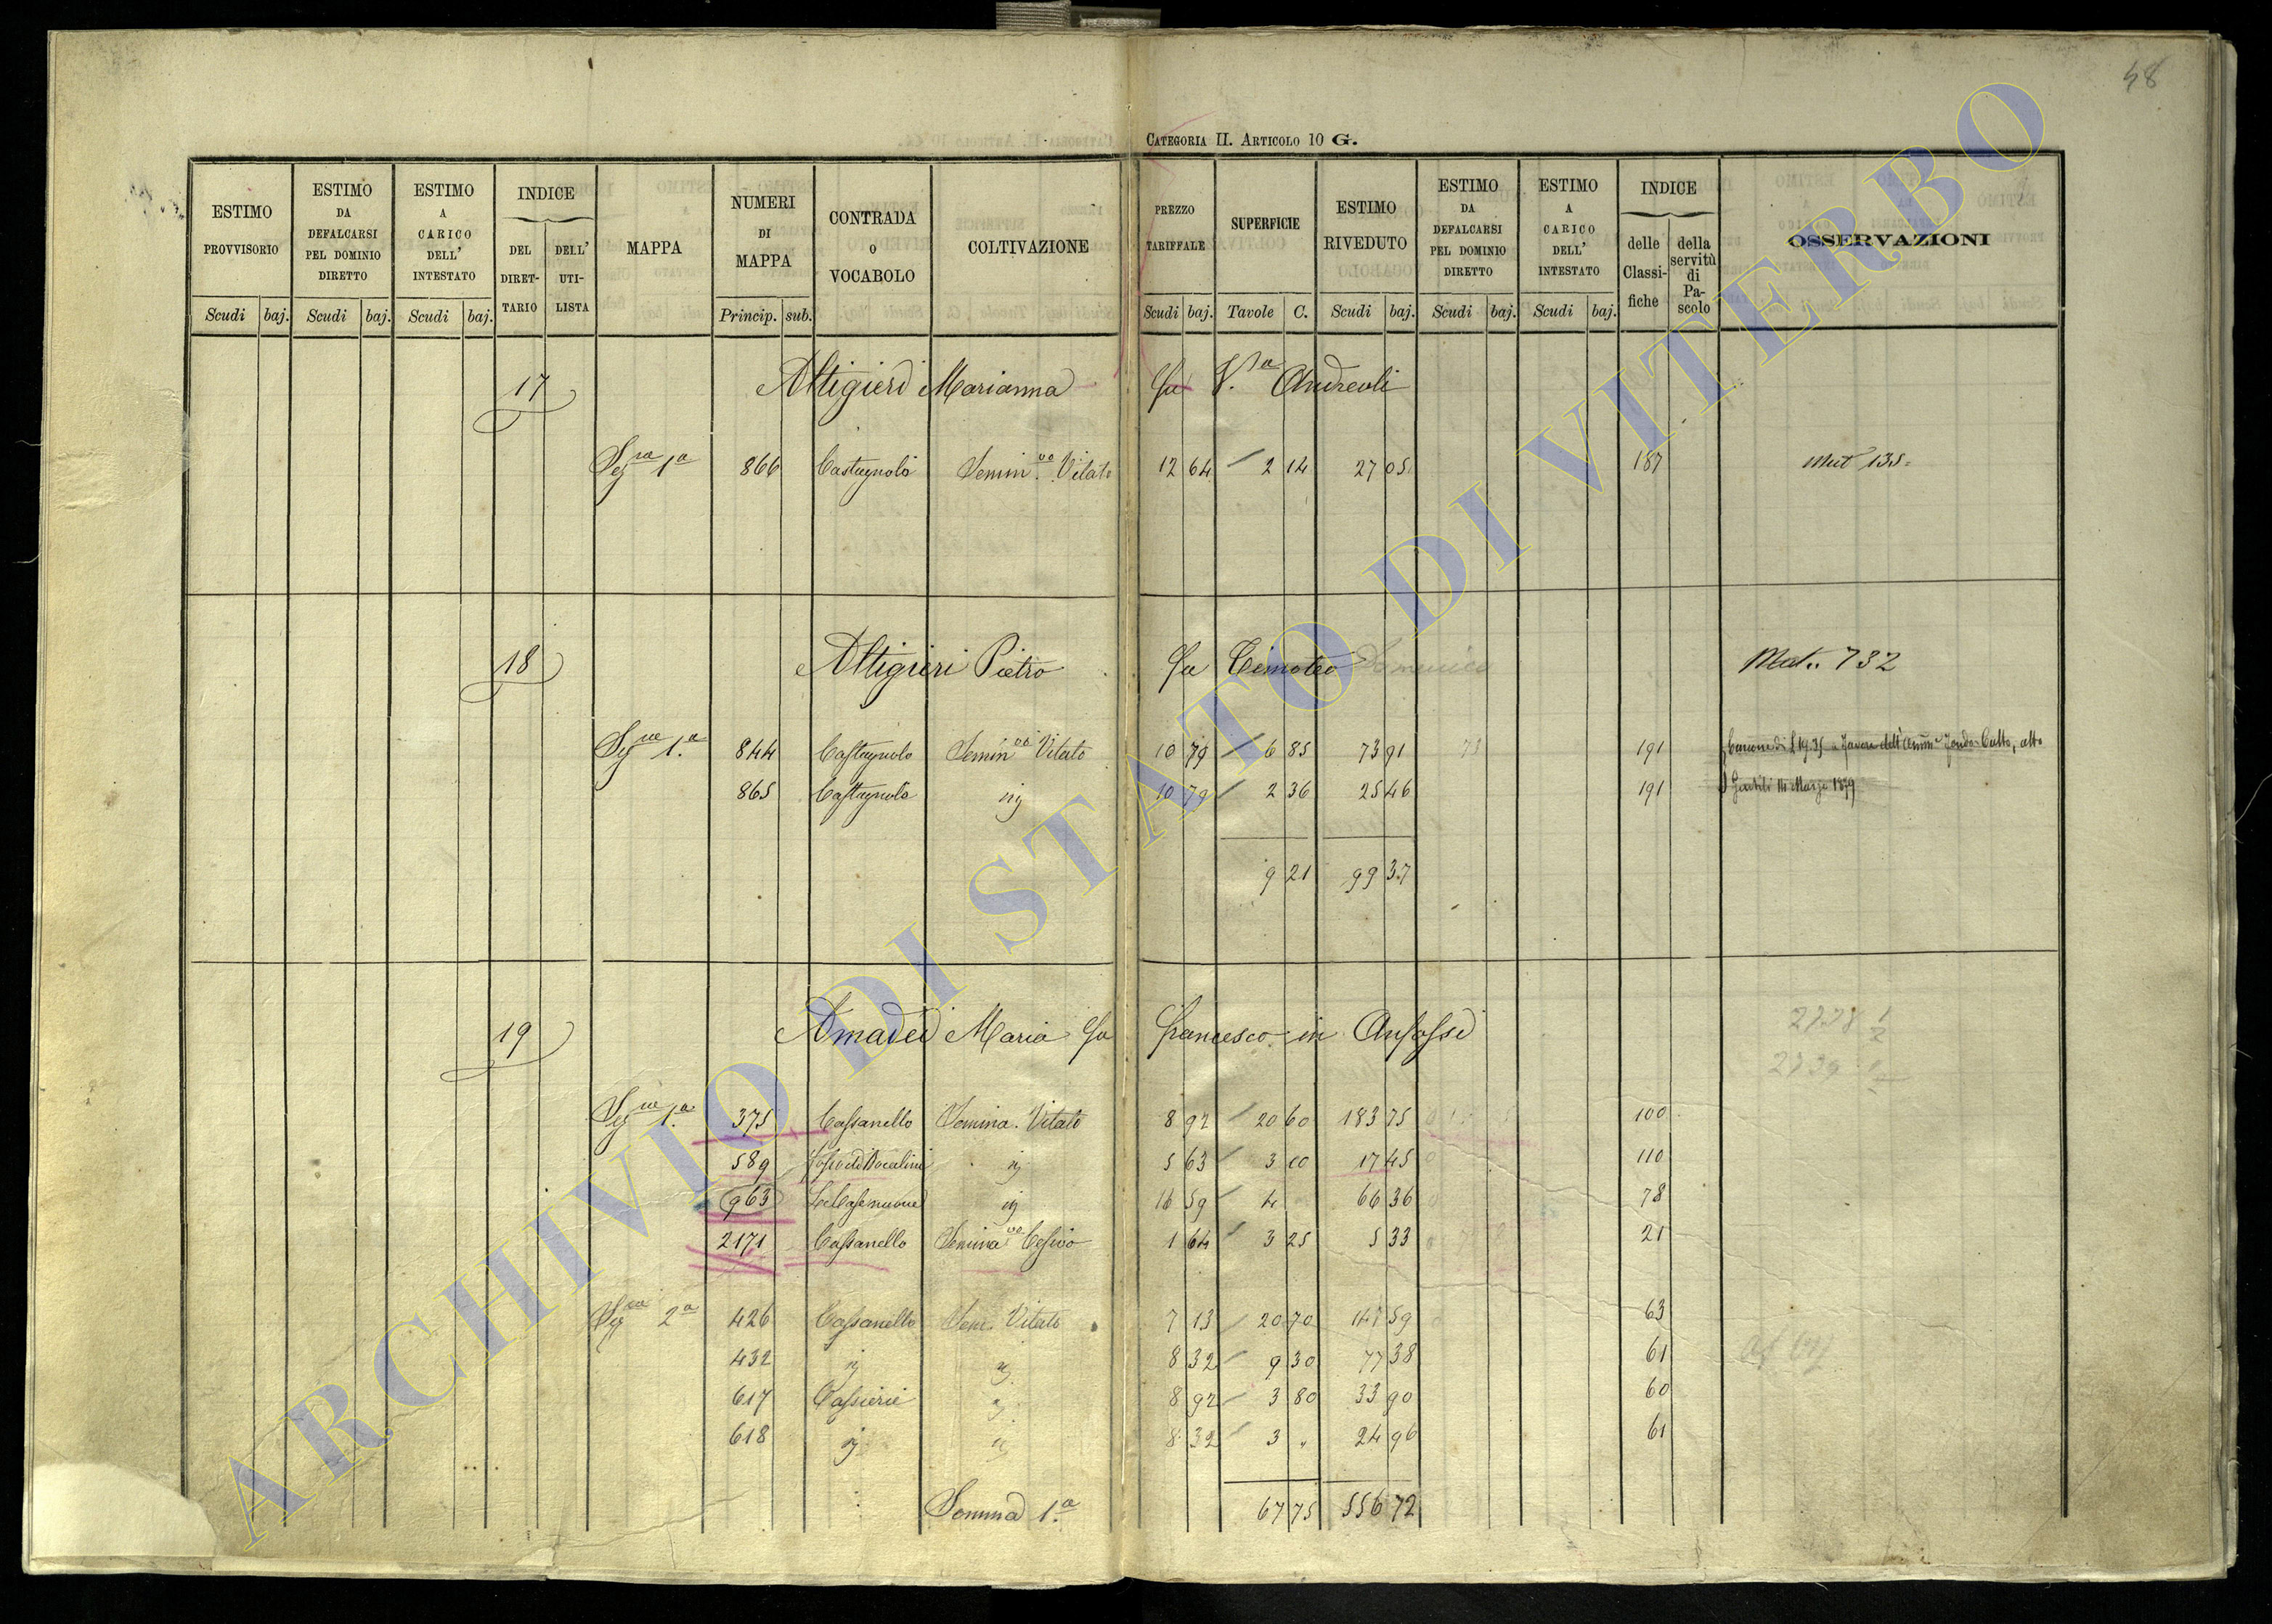 48
CATEGORIA II. ARTICOLO 10 G.
ESTIMO PROVVISORIO | ESTIMO DA DEFALCARSI PEL DOMINIO DIRETTO | ESTIMO A CARICO DELL' INTESTATO | INDICE DEL DIRETTARIO | DELL' UTILISTA | MAPPA | NUMERI DI MAPPA | CONTRADA O VOCABOLO | COLTIVAZIONE | PREZZO TARIFFALE | SUPERFICIE | ESTIMO RIVEDUTO | ESTIMO DA DEFALCARSI PEL DOMINIO DIRETTO | ESTIMO A CARICO DELL' INTESTATO | INDICE delle Classifiche | della servitù di Pascolo | OSSERVAZIONI
Scudi baj. Scudi baj. Scudi baj. Princip. sub. Scudi baj. Tavole C. Scudi baj. Scudi baj. Scudi baj.
17 Altigieri Marianna fu V.a Andreoli
Sez.ne 1a 866 Castagnolo Semin.vo Vitato 12 64 2 14 27 05 187 Mut 135
18 Altigieri Pietro fu Timoteo Domenico Mat. 732
Sez.ne 1.a 844 Castagnolo Semin.vo Vitato 10 79 6 85 73 91 73 191 Canone di £ 19.35 a favore dell' Amm.e Fondo Culto, atto
865 Castagnolo ij 10 79 2 36 25 46 191 Gentili 14 Marzo 1879
9 21 99 37
19 Amadei Maria fu Francesco in Anfossi
Sez.ne 1.a 375 Cassanello Semina. Vitato 8 92 20 60 183 75 100
589 ij 5 63 3 00 17 45 110
963 Le Casenuove ij 16 59 4 66 36 78
2171 Cassanello Semina.vo Cesivo 1 64 3 25 5 33 21
Sez.ne 2a 426 Cassanello Sem. Vitato 7 13 20 70 147 59 63
432 ij ij 8 32 9 30 77 38 61
617 Cassierie ij 8 92 3 80 33 90 60
618 ij ij 8 32 3 " 24 96 61
Somma 1.a 67 75 556 72
ARCHIVIO DI STATO DI VITERBO